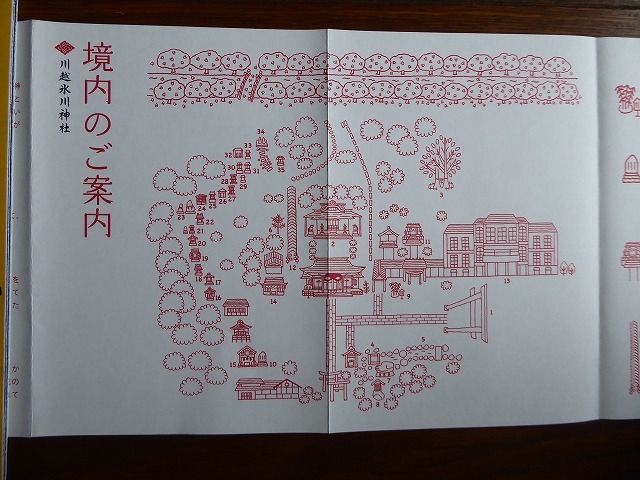 境内のご案内
川越氷川神社
34
32
33
31
35
30
29
28
27
26
25
24
23
22
21
20
19
18
17
16
3
2
11
12
14
13
9
1
15
10
4
5
7
8